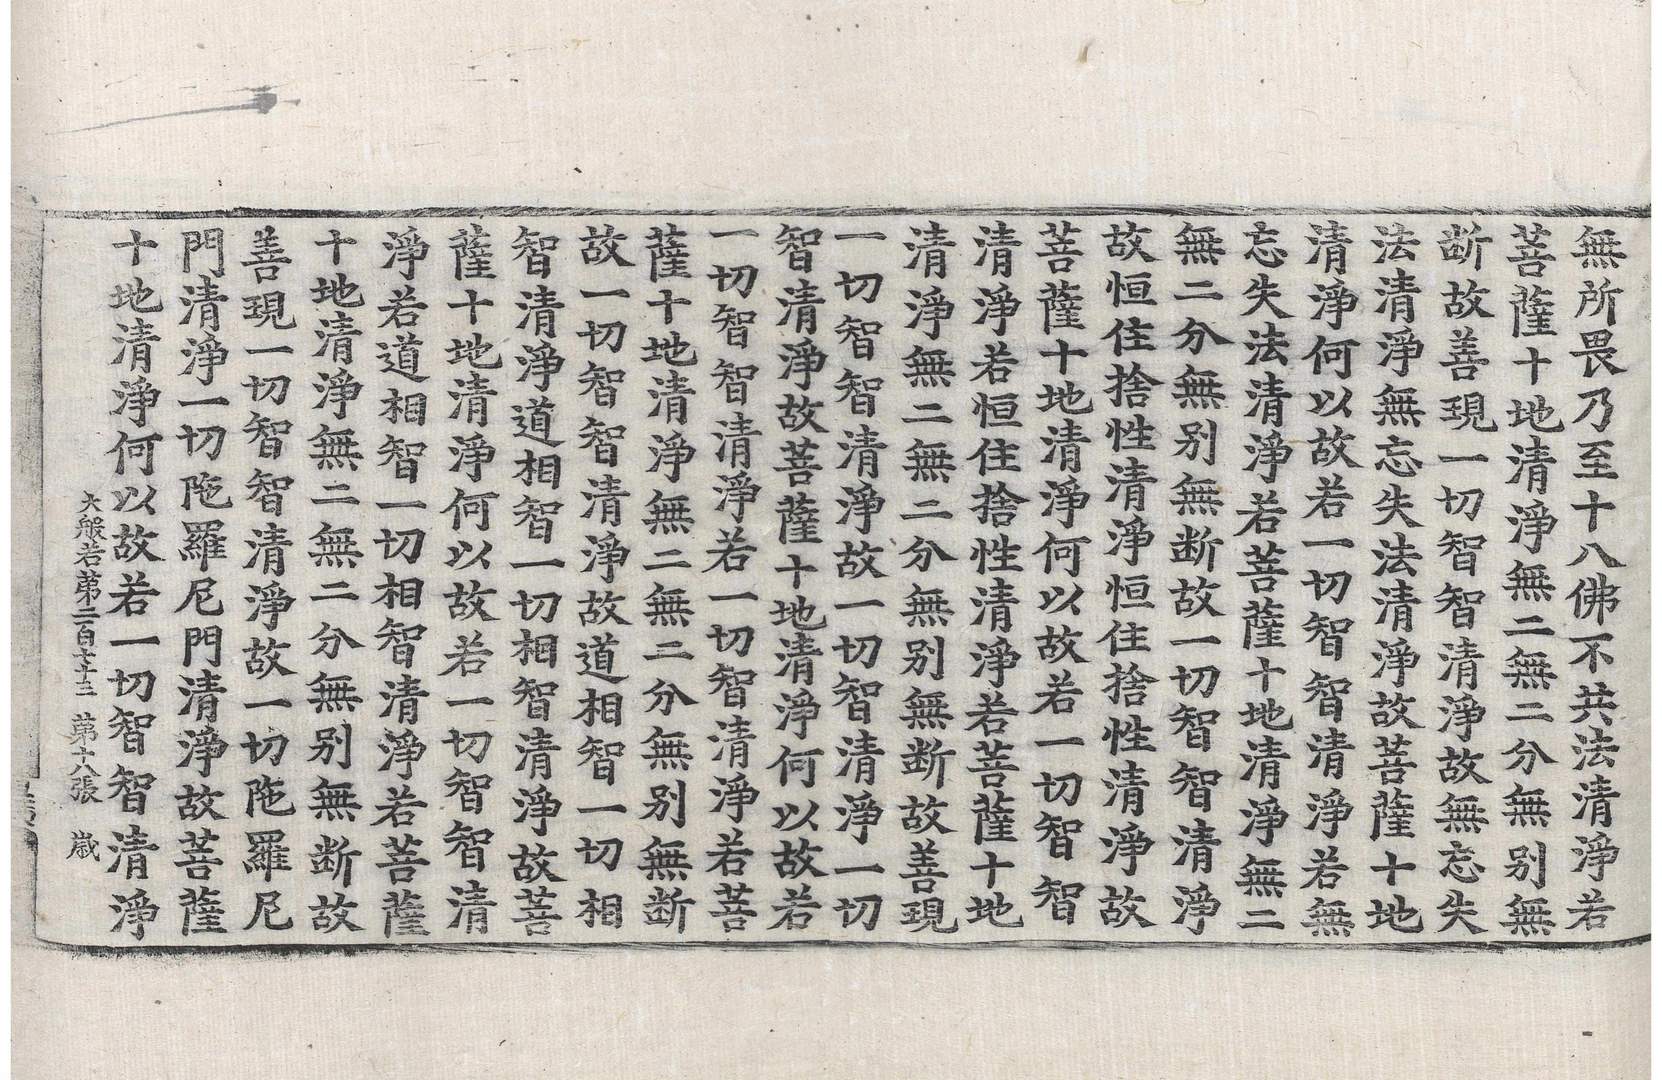 無所畏乃至十八佛不共法清淨若
菩薩十地清淨無二無二分無别無
断故善現一切智智清淨故無忘失
法清淨無忘失法清淨故菩薩十地
清淨何以故若一切智智清淨若無
忘失法清淨若菩薩十地清淨無二
無二分無别無断故一切智智清淨
故恒住捨性清淨恒住捨性清淨故
菩薩十地清淨何以故若一切智智
清淨若恒住捨性清淨若菩薩十地
清淨無二無二分無别無断故善現
一切智智清淨故一切智清淨一切
智清淨故菩薩十地清淨何以故若
一切智智清淨若一切智清淨若菩
薩十地清淨無二無二分無别無断
故一切智智清淨故道相智一切相
智清淨道相智一切相智清淨故菩
薩十地清淨何以故若一切智智清
淨若道相智一切相智清淨若菩薩
十地清淨無二無二分無别無断故
善現一切智智清淨故一切陁羅尼
門清淨一切陁羅尼門清淨故菩薩
十地清淨何以故若一切智智清淨
大般若第二百七十三 第十八張 歲